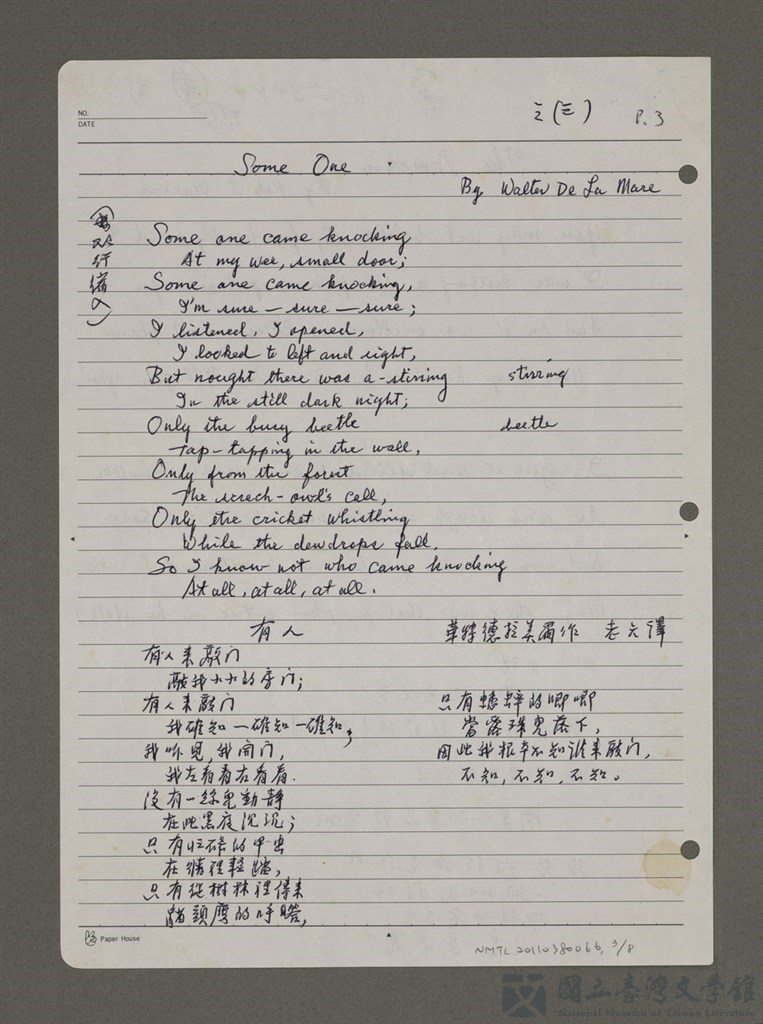 NO.
DATE
之(三) P. 3
Some One
By Walter De La Mare
雙行縮入
Some one came knocking
At my wee, small door;
Some one came knocking,
I'm sure — sure — sure;
I listened, I opened,
I looked to left and right,
But nought there was a-stirring stirring
In the still dark night;
Only the busy beetle beetle
Tap-tapping in the wall,
Only from the forest
The screech-owl's call,
Only the cricket whistling
While the dewdrops fall,
So I know not who came knocking
At all, at all, at all.
有人 華特德拉美爾作 老六譯
有人來敲门
敲我小小的房门;
有人來敲门
我確知—確知—確知;
我听見,我開门,
我左看看右看看.
沒有一絲兒動靜
在此黑夜沉沉;
只有忙碌的甲虫
在牆裡輕踏,
只有從樹林裡傳來
貓頭鹰的呼喚,
只有蟋蟀的唧唧
當露珠兒落下,
因此我根本不知誰來敲门,
不知,不知,不知。
Paper House
NMTL 20110380066, 3/8
國立臺灣文學館
National Museum of Taiwan Literature